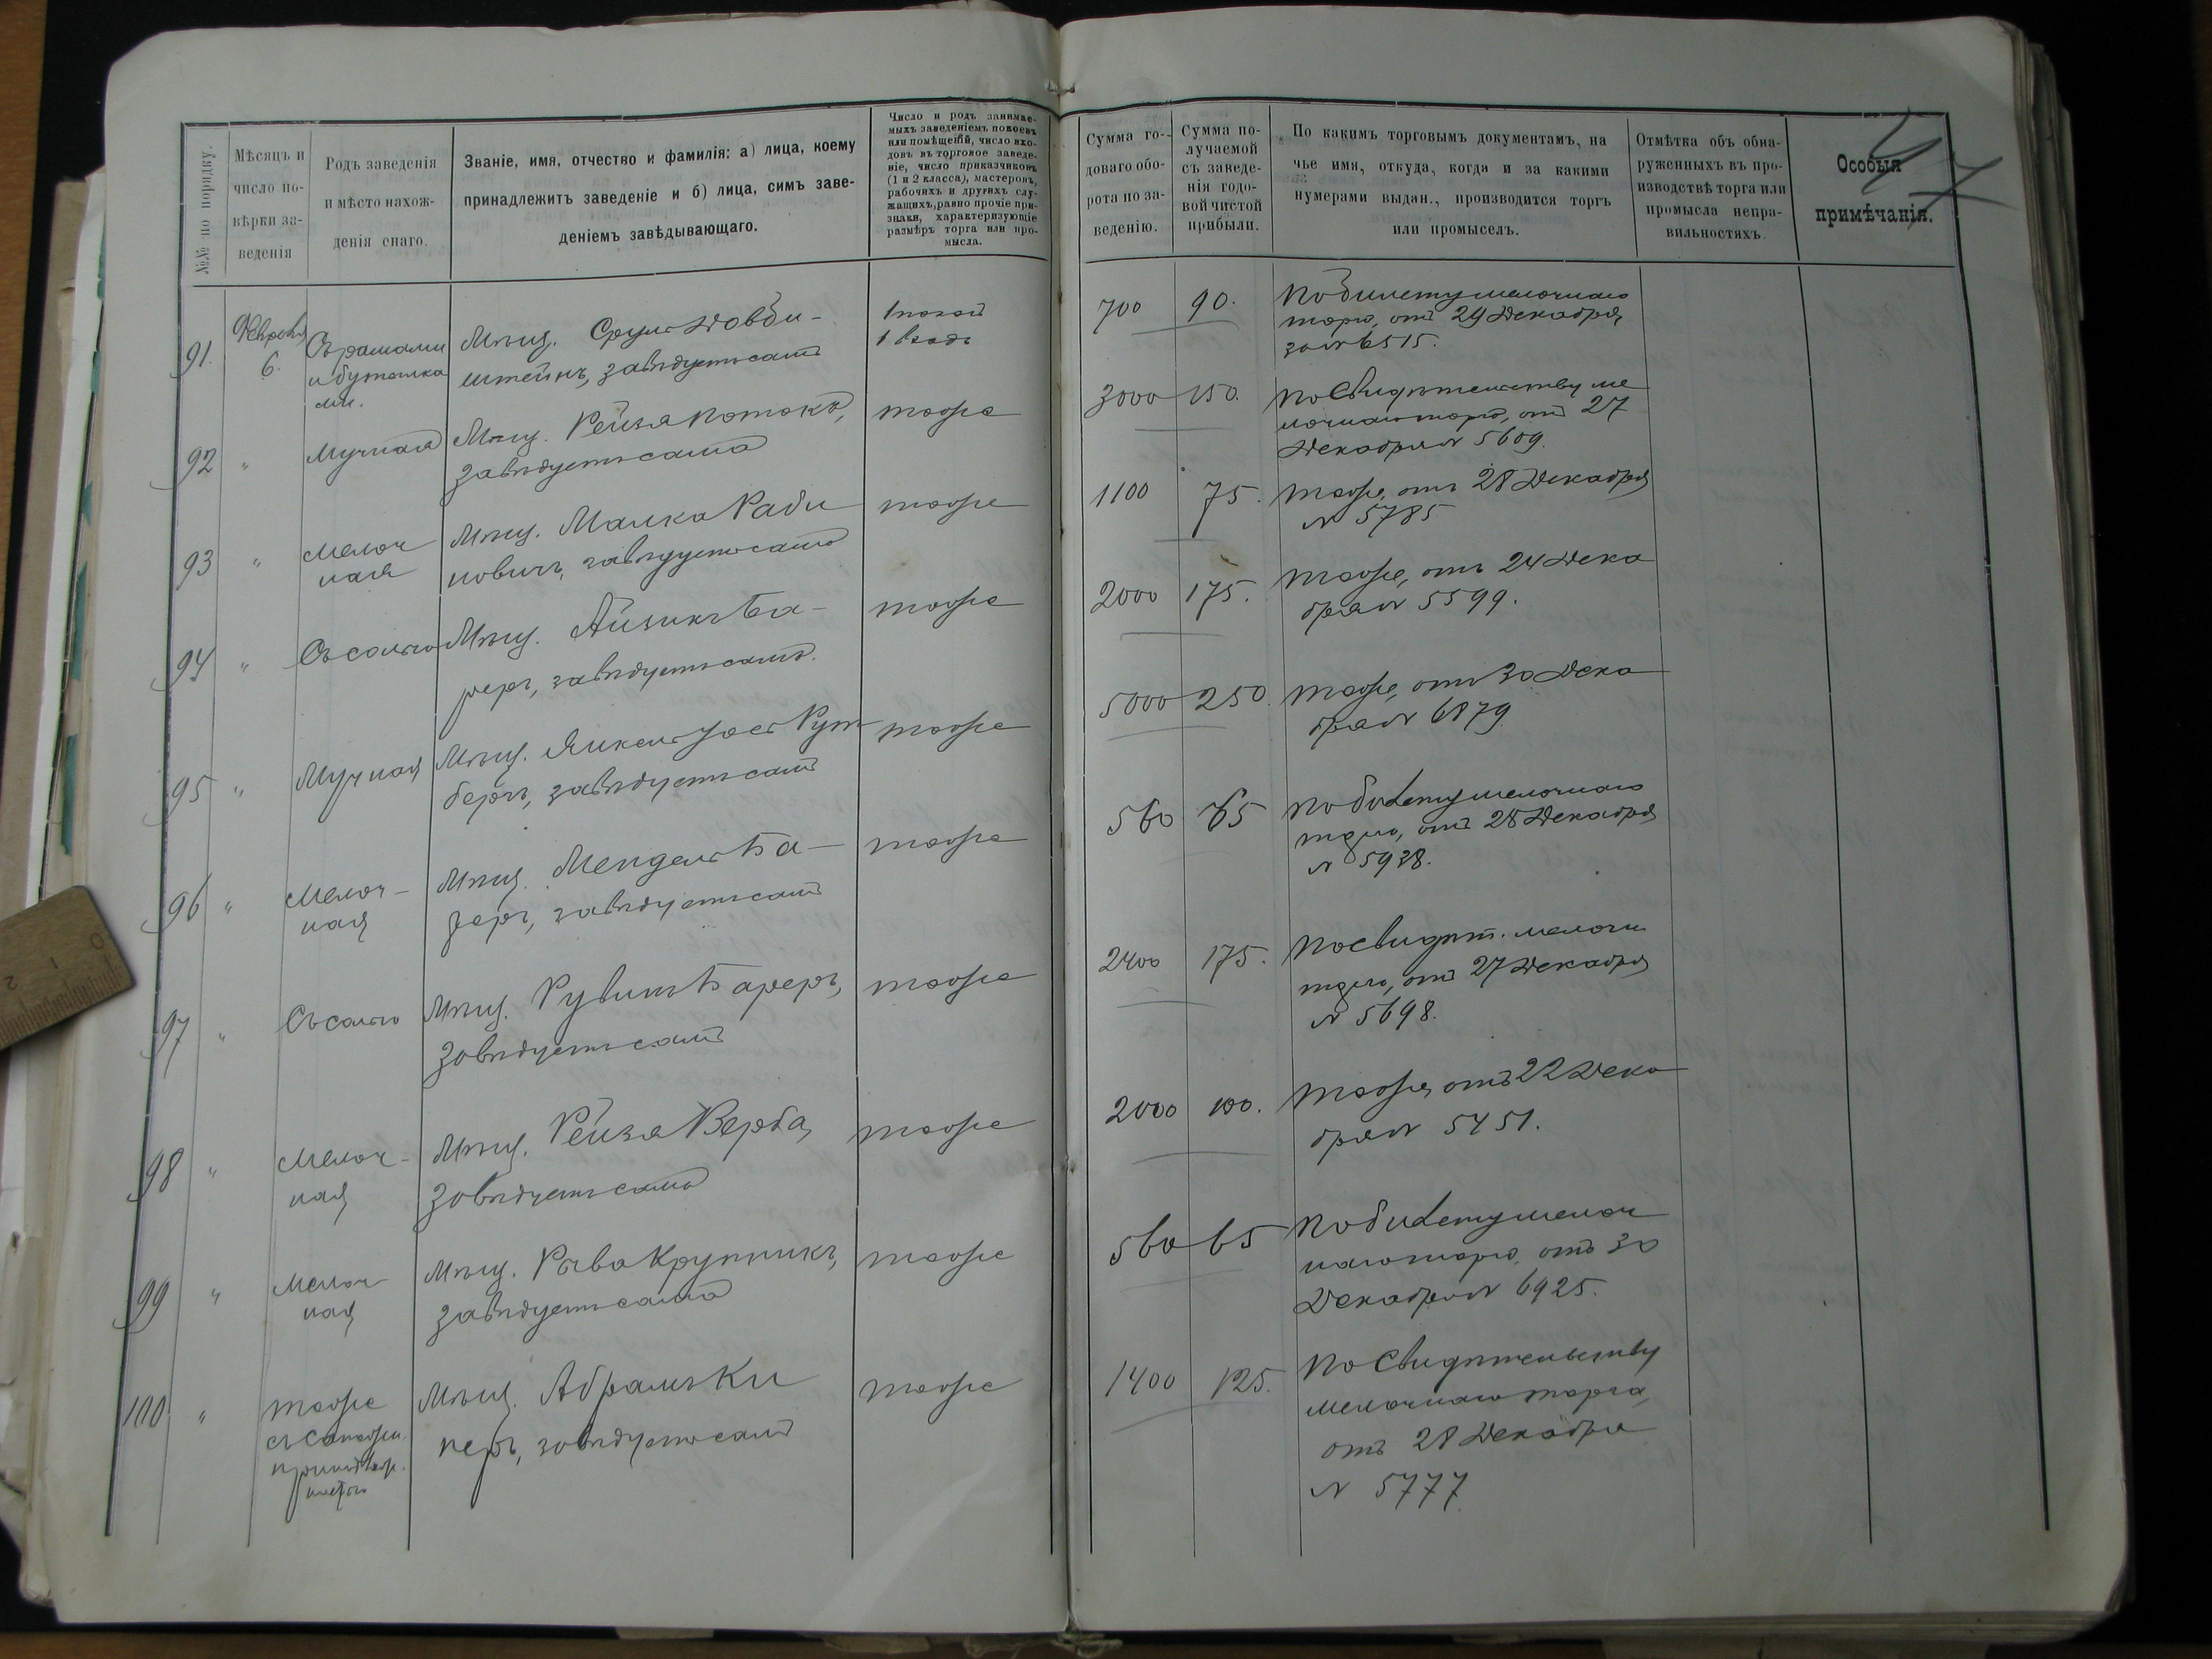 №№ по порядку.
Мѣсяцъ и
число по-
вѣрки за-
веденія
Родъ заведенія
и мѣсто нахож-
денія онаго.
Званіе, имя, отчество и фамилія: а) лица, коему
принадлежитъ заведеніе и б) лица, симъ заве-
деніемъ завѣдывающаго.
Число и родъ занимае-
мыхъ заведеніемъ покоевъ
или помѣщеній, число вхо-
довъ въ торговое заведе-
ніе, число приказчиковъ
(1 и 2 класса), мастеровъ,
рабочихъ и другихъ слу-
жащихъ, равно прочіе при-
знаки, характеризующіе
размѣръ торга или про-
мысла.
Сумма го-
доваго обо-
рота по за-
веденію.
Сумма по-
лучаемой
съ заведе-
нія годо-
вой чистой
прибыли.
По какимъ торговымъ документамъ, на
чье имя, откуда, когда и за какими
нумерами выдан., производится торгъ
или промыселъ.
Отмѣтка объ обна-
руженныхъ въ про-
изводствѣ торга или
промысла непра-
вильностяхъ.
Особыя
примѣчанія.
47
91.
Февраля
6.
Съ рамами
и бутылка
ми.
Мѣщ. Сруль Довби-
штейнъ, завѣдуетъ самъ
1 покой
1 входъ
700
90.
По билету мелочнаго
торга, отъ 29 Декабря
за № 6515.
92
"
Мучная
Мѣщ. Рейзя Потокъ,
завѣдуетъ сама
тоже
3000
150.
По свидѣтельству ме
лочнаго торга, отъ 27
Декабря № 5609.
93
"
Мелоч
ная
Мѣщ. Малка Раби
новичъ, завѣдуетъ сама
тоже
1100
75.
Тоже, отъ 28 Декабря
№ 5785
94
"
Съ солью
Мѣщ. Айзикъ Ба-
реръ, завѣдуетъ самъ.
тоже
2000
175.
Тоже, отъ 24 Дека
бря № 5599.
95
"
Мучная
Мѣщ. Янкель Іось Рут
бергъ, завѣдуетъ самъ
тоже
5000
250.
Тоже, отъ 30 Дека
бря № 6879
96
"
Мелоч-
ная
Мѣщ. Мендель Ба-
реръ, завѣдуетъ самъ
тоже
560
65
По билету мелочнаго
торга, отъ 28 Декабря
№ 5938.
97
"
Съ солью
Мѣщ. Рувинъ Бареръ,
завѣдуетъ самъ
тоже
2400
175.
По свидѣт. мелочн
торга, отъ 27 Декабря
№ 5698.
98
"
Мелоч-
ная
Мѣщ. Рейзя Верба,
завѣдуетъ сама
тоже
2000
100.
Тоже, отъ 22 Дека
бря № 5451.
99
"
Мелоч
ная
Мѣщ. Рыва Крупникъ,
завѣдуетъ сама
тоже
560
65
По билету мелоч
наго торга, отъ 30
Декабря № 6925.
100
"
Тоже
съ сапожн.
принадлеж.
ностью
Мѣщ. Абрамъ Ки
перъ, завѣдуетъ самъ
тоже
1400
125.
По свидѣтельству
мелочнаго торга,
отъ 28 Декабря
№ 5777